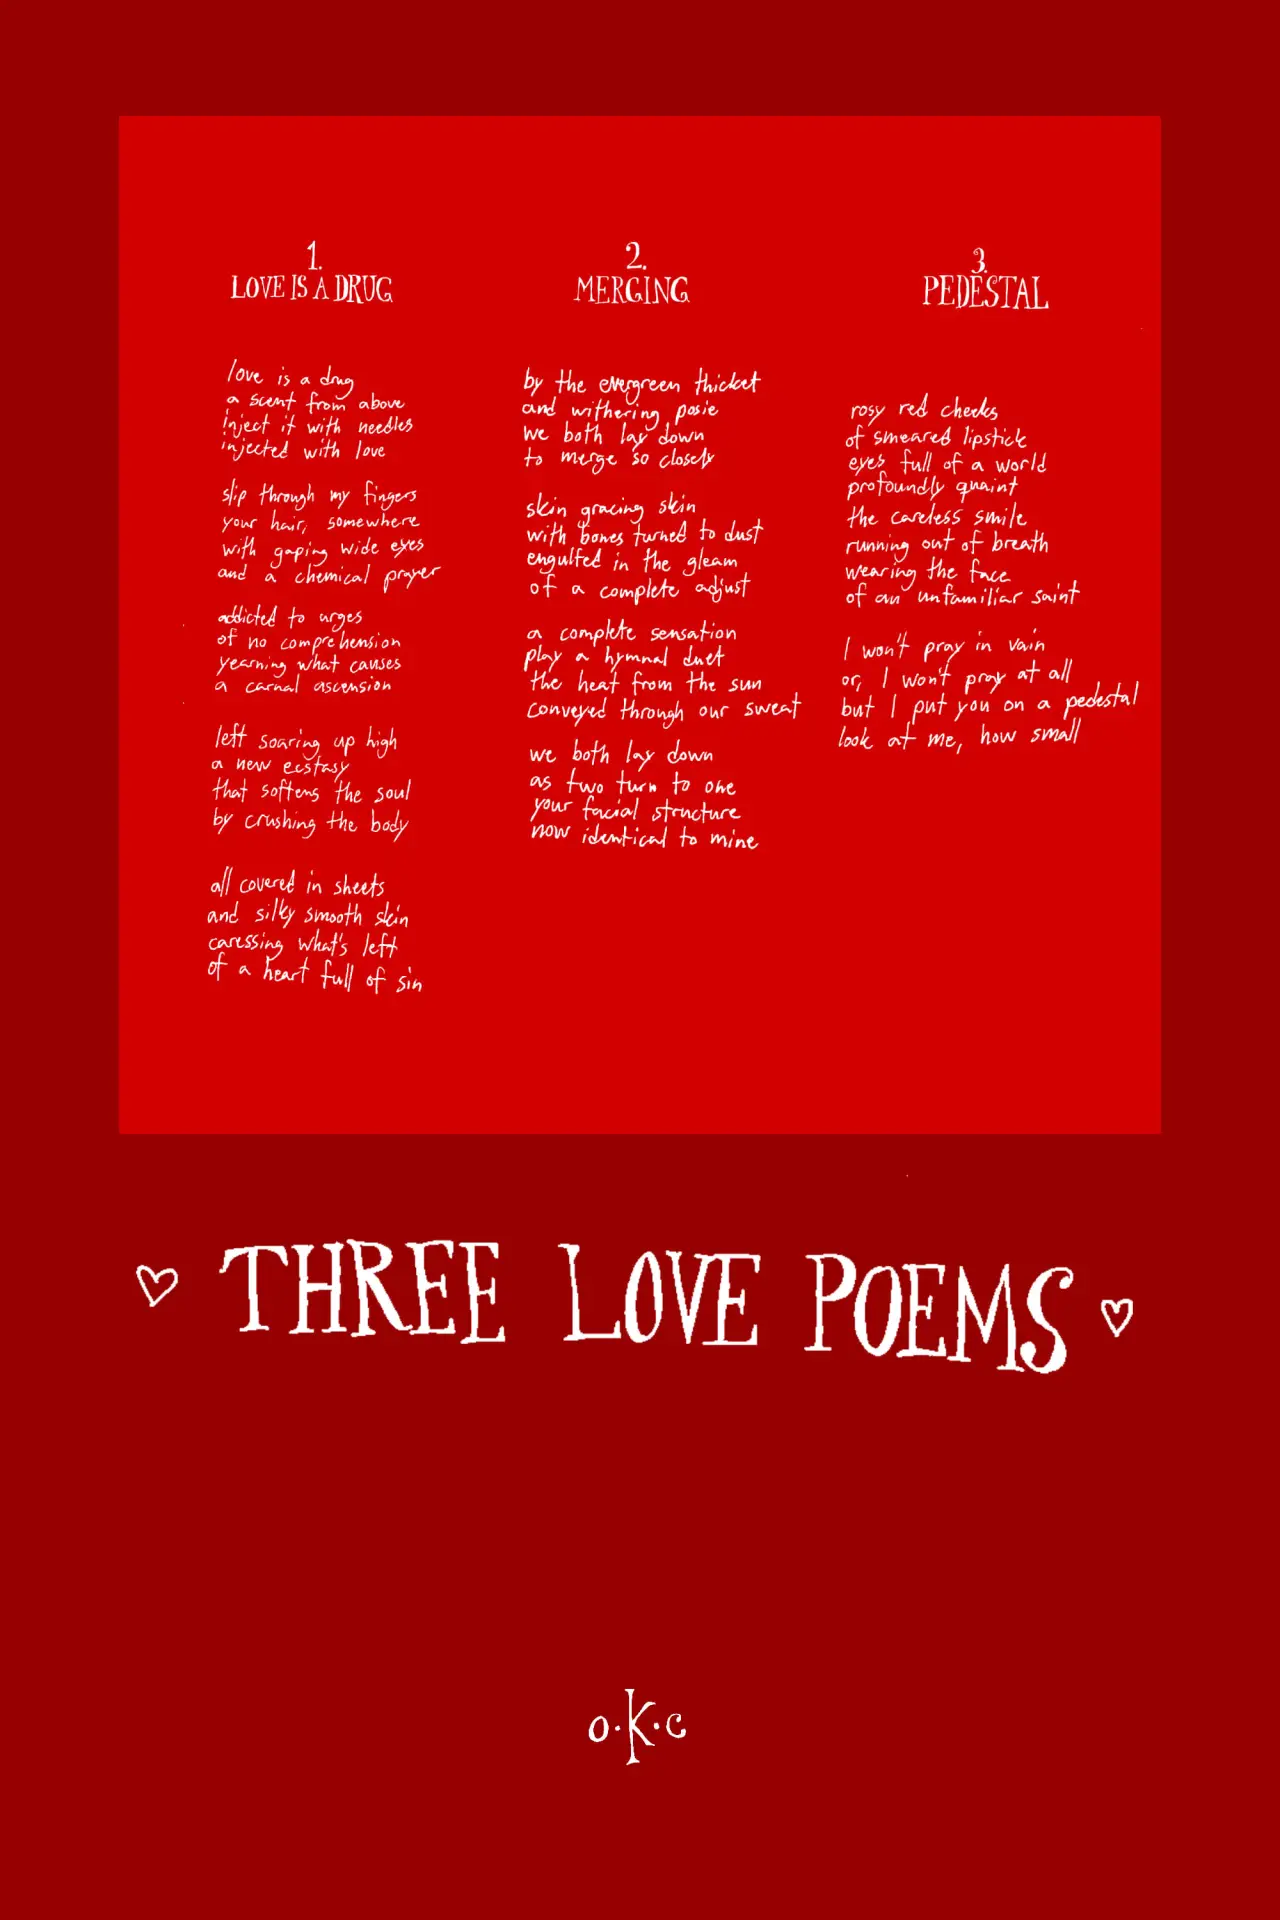 1.
LOVE IS A DRUG
love is a drug
a scent from above
inject it with needles
injected with love
slip through my fingers
your hair, somewhere
with gaping wide eyes
and a chemical prayer
addicted to urges
of no comprehension
yearning what causes
a carnal ascension
left soaring up high
a new ecstasy
that softens the soul
by crushing the body
all covered in sheets
and silky smooth skin
caressing what's left
of a heart full of sin
2.
MERGING
by the evergreen thicket
and withering posie
we both lay down
to merge so closely
skin gracing skin
with bones turned to dust
engulfed in the gleam
of a complete adjust
a complete sensation
play a hymnal duet
the heat from the sun
conveyed through our sweat
we both lay down
as two turn to one
your facial structure
now identical to mine
3.
PEDESTAL
rosy red cheeks
of smeared lipstick
eyes full of a world
profoundly quaint
the careless smile
running out of breath
wearing the face
of an unfamiliar saint
I won't pray in vain
or, I won't pray at all
but I put you on a pedestal
look at me, how small
THREE LOVE POEMS
o·k·c